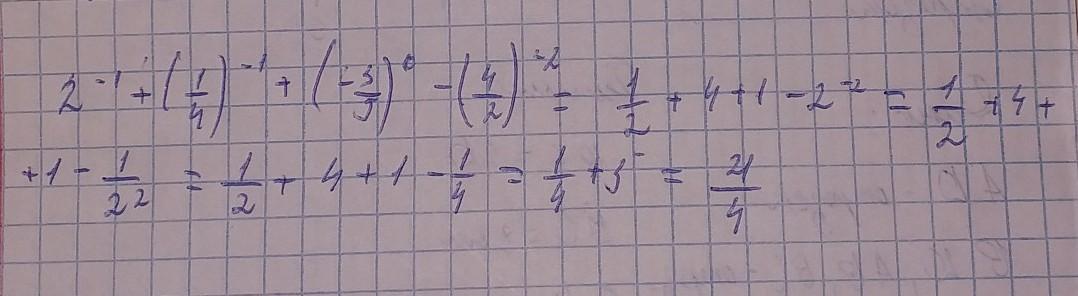 2⁻¹ + (1/4)⁻¹ + (-3/5)⁰ - (4/2)⁻² = 1/2 + 4 + 1 - 2⁻² = 1/2 + 4 +
+1 - 1/2² = 1/2 + 4 + 1 - 1/4 = 1/4 + 5 = 21/4